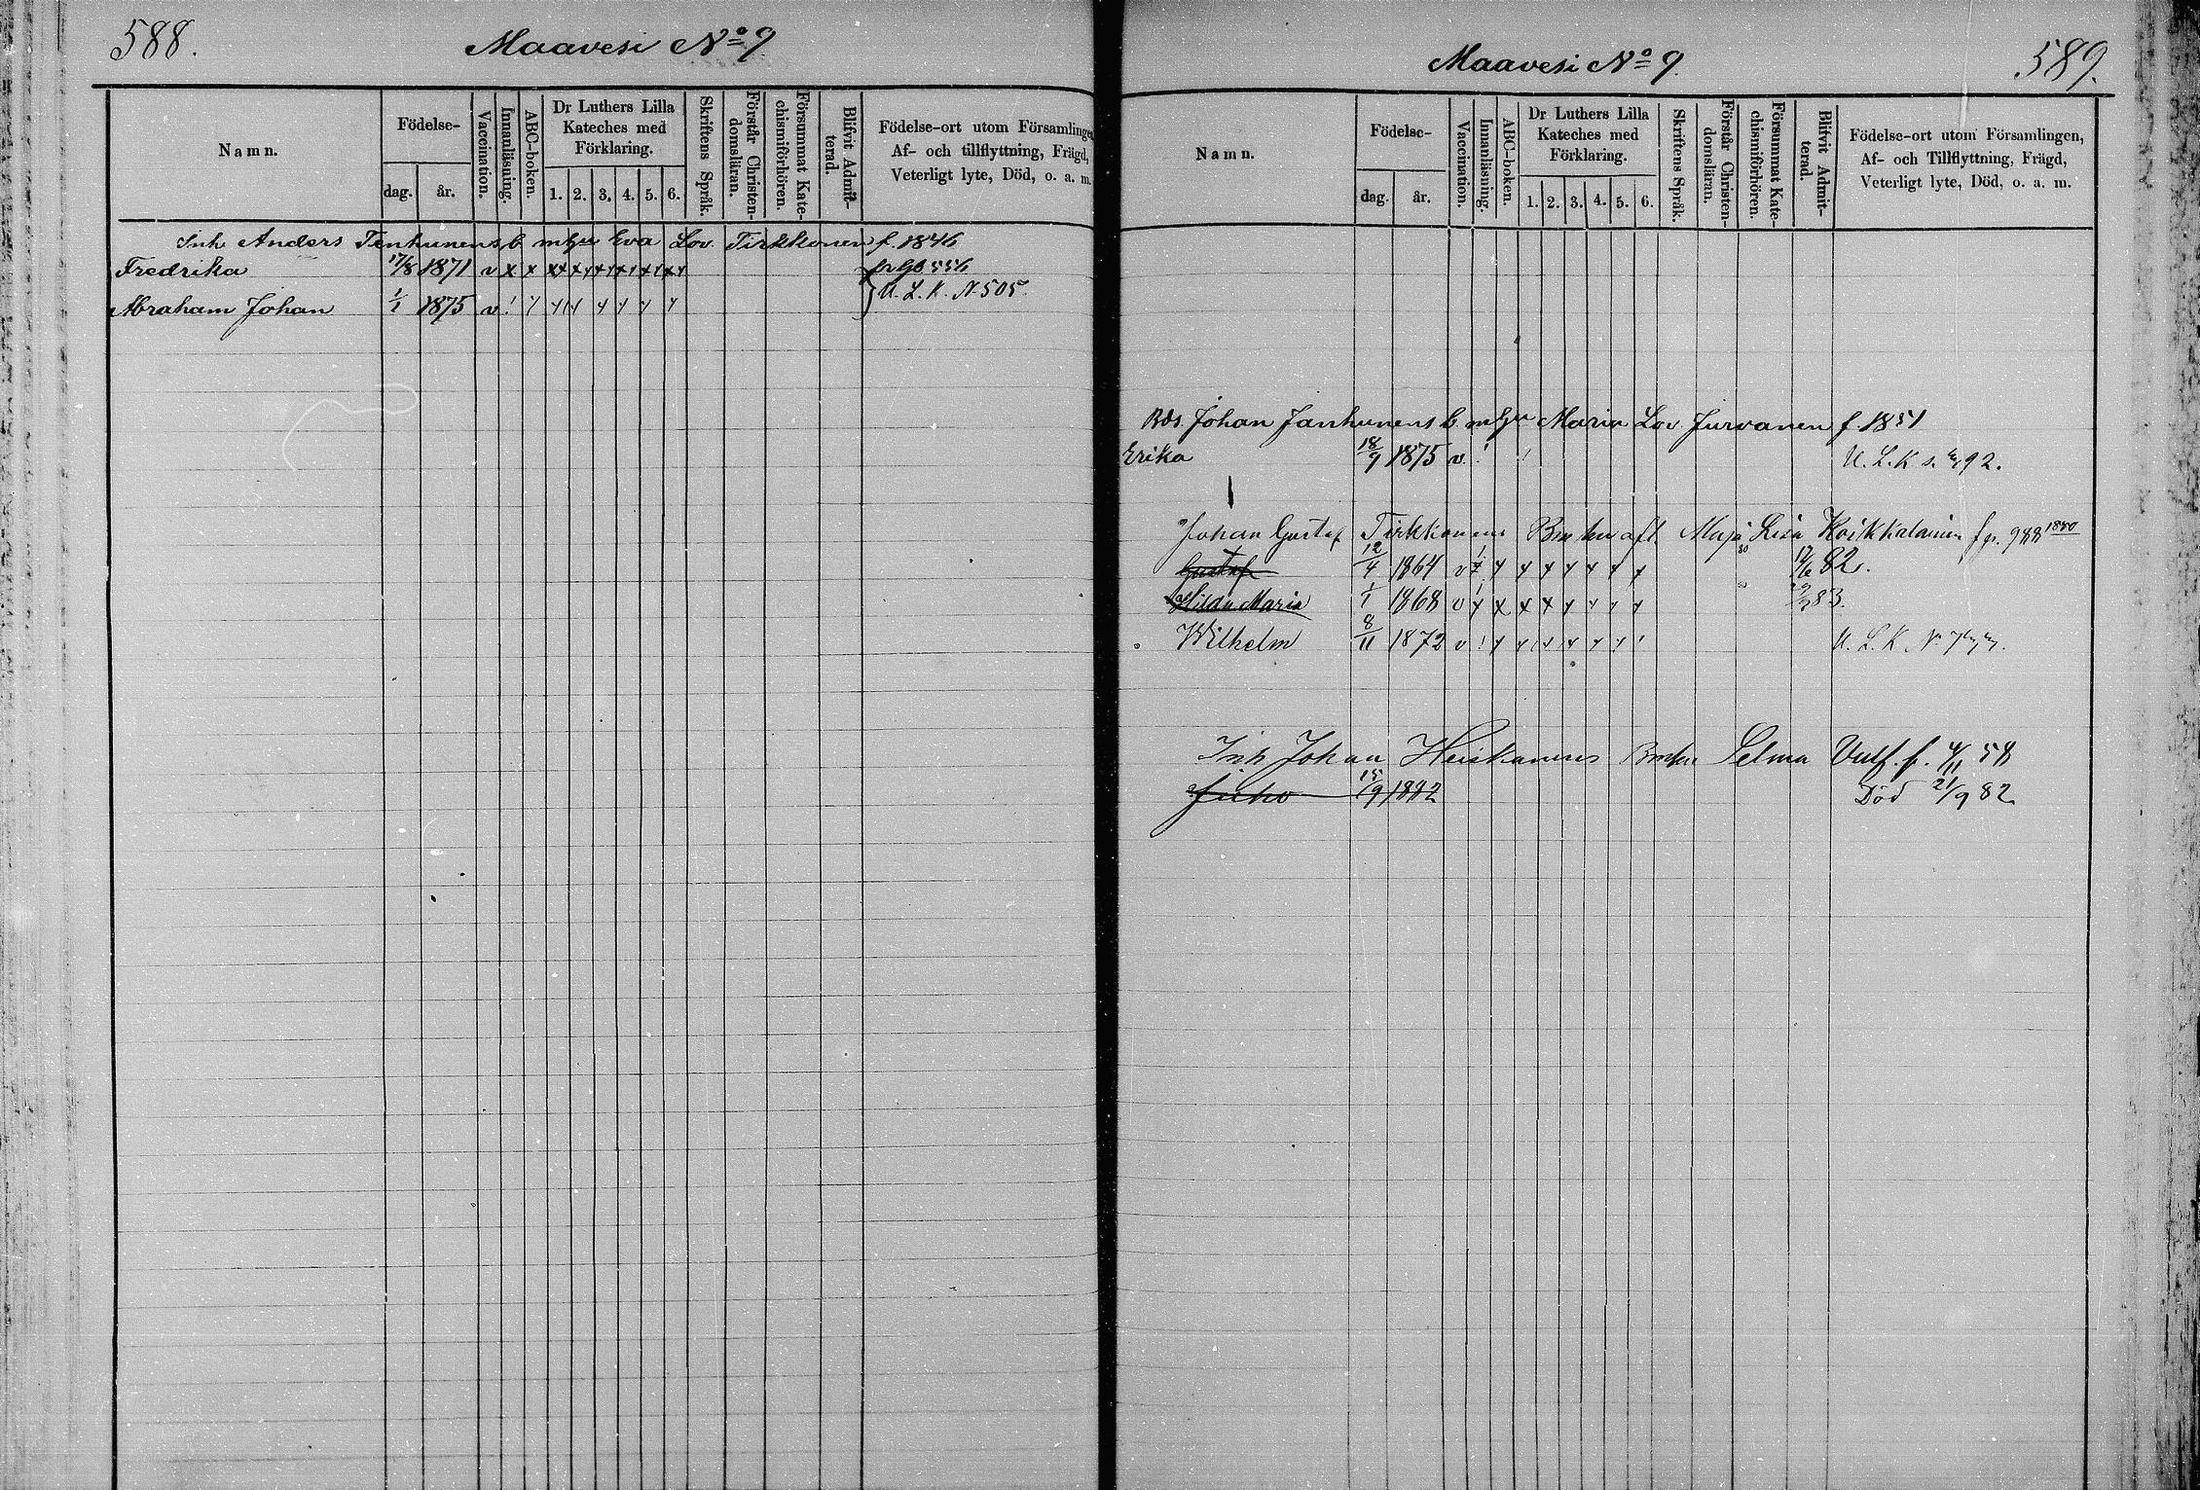 588.
Maavesi No 9
Namn.
Födelse-
dag.
år.
Vaccination.
Innanläsning.
ABC-boken.
Dr Luthers Lilla
Kateches med
Förklaring.
1. 2. 3. 4. 5. 6.
Skriftens Språk.
Förstår Christen-
domsläran.
Försummat Kate-
chismiförhören.
Blifvit Admit-
terad.
Födelse-ort utom Församlingen
Af- och tillflyttning, Frägd,
Veterligt lyte, Död, o. a. m.
Inh Anders Tenhunens b. m hu Eva Lov. Tirkkonen f. 1846
Fredrika 17/8 1871 v x x x x x x x x 556
Abraham Johan 1/1 1875 v U. L. K. N. 505.
Maavesi No 9.
589.
Namn.
Födelse-
dag.
år.
Vaccination.
Innanläsning.
ABC-boken.
Dr Luthers Lilla
Kateches med
Förklaring.
1. 2. 3. 4. 5. 6.
Skriftens Språk.
Förstår Christen-
domsläran.
Försummat Kate-
chismiförhören.
Blifvit Admit-
terad.
Födelse-ort utom Församlingen,
Af- och Tillflyttning, Frägd,
Veterligt lyte, Död, o. a. m.
Johan Janhunens b. m hu Maria Lov. Jurvanen f. 1851
Erika 18/9 1875 v. U. L. K s. 92.
Johan Gustaf Tirkkonens Maja Lisa 1880
Gustaf 12/4 1864 v 82.
Maria 1/1 1868 v 83.
Wilhelm 8/11 1872 v U. L. K. N.
Inh Johan Heiskanens Selma Vulf. f. 4/11 58
Juho 15/9 1882 Död 21/9 82